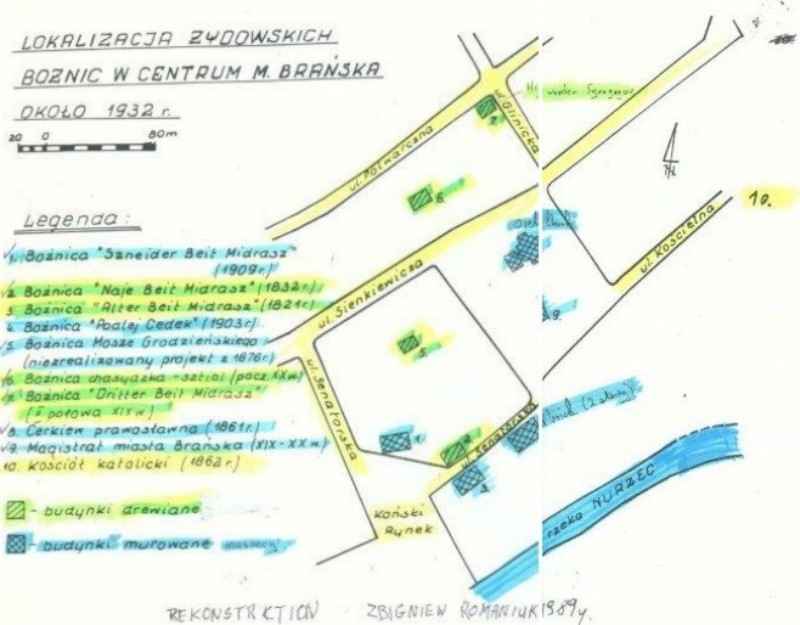 LOKALIZACJA ŻYDOWSKICH
BOŻNIC W CENTRUM M. BRAŃSKA
OKOŁO 1932 r.
20 0 80m
Legenda:
1. Bożnica "Szneider Beit Midrasz"
(1909r.)
2. Bożnica "Naje Beit Midrasz" (1832r.)
3. Bożnica "Alter Beit Midrasz" (1821r.)
4. Bożnica "Poalej Cedek" (1903r.)
5. Bożnica Mosze Grodzieńskiego
(niezrealizowany projekt z 1876r.)
6. Bożnica chasydzka - sztibl (pocz. XX w.)
7. Bożnica "Dritter Beit Midrasz"
(II połowa XIX w.)
8. Cerkiew prawosławna (1861r.)
9. Magistrat miasta Brańska (XIX-XX w.)
10. Kościół katolicki (1862r.)
- budynki drewiane
- budynki murowane
ul. Folwarczna
ul. Binicka
7
6
ul. Sienkiewicza
ul. Kościelna
10.
N
3
ul. Senatorska
1
2
4
9.
Koński
Rynek
rzeka NURZEC
REKONSTRKTION ZBIGNIEW ROMANIUK 1989 y.